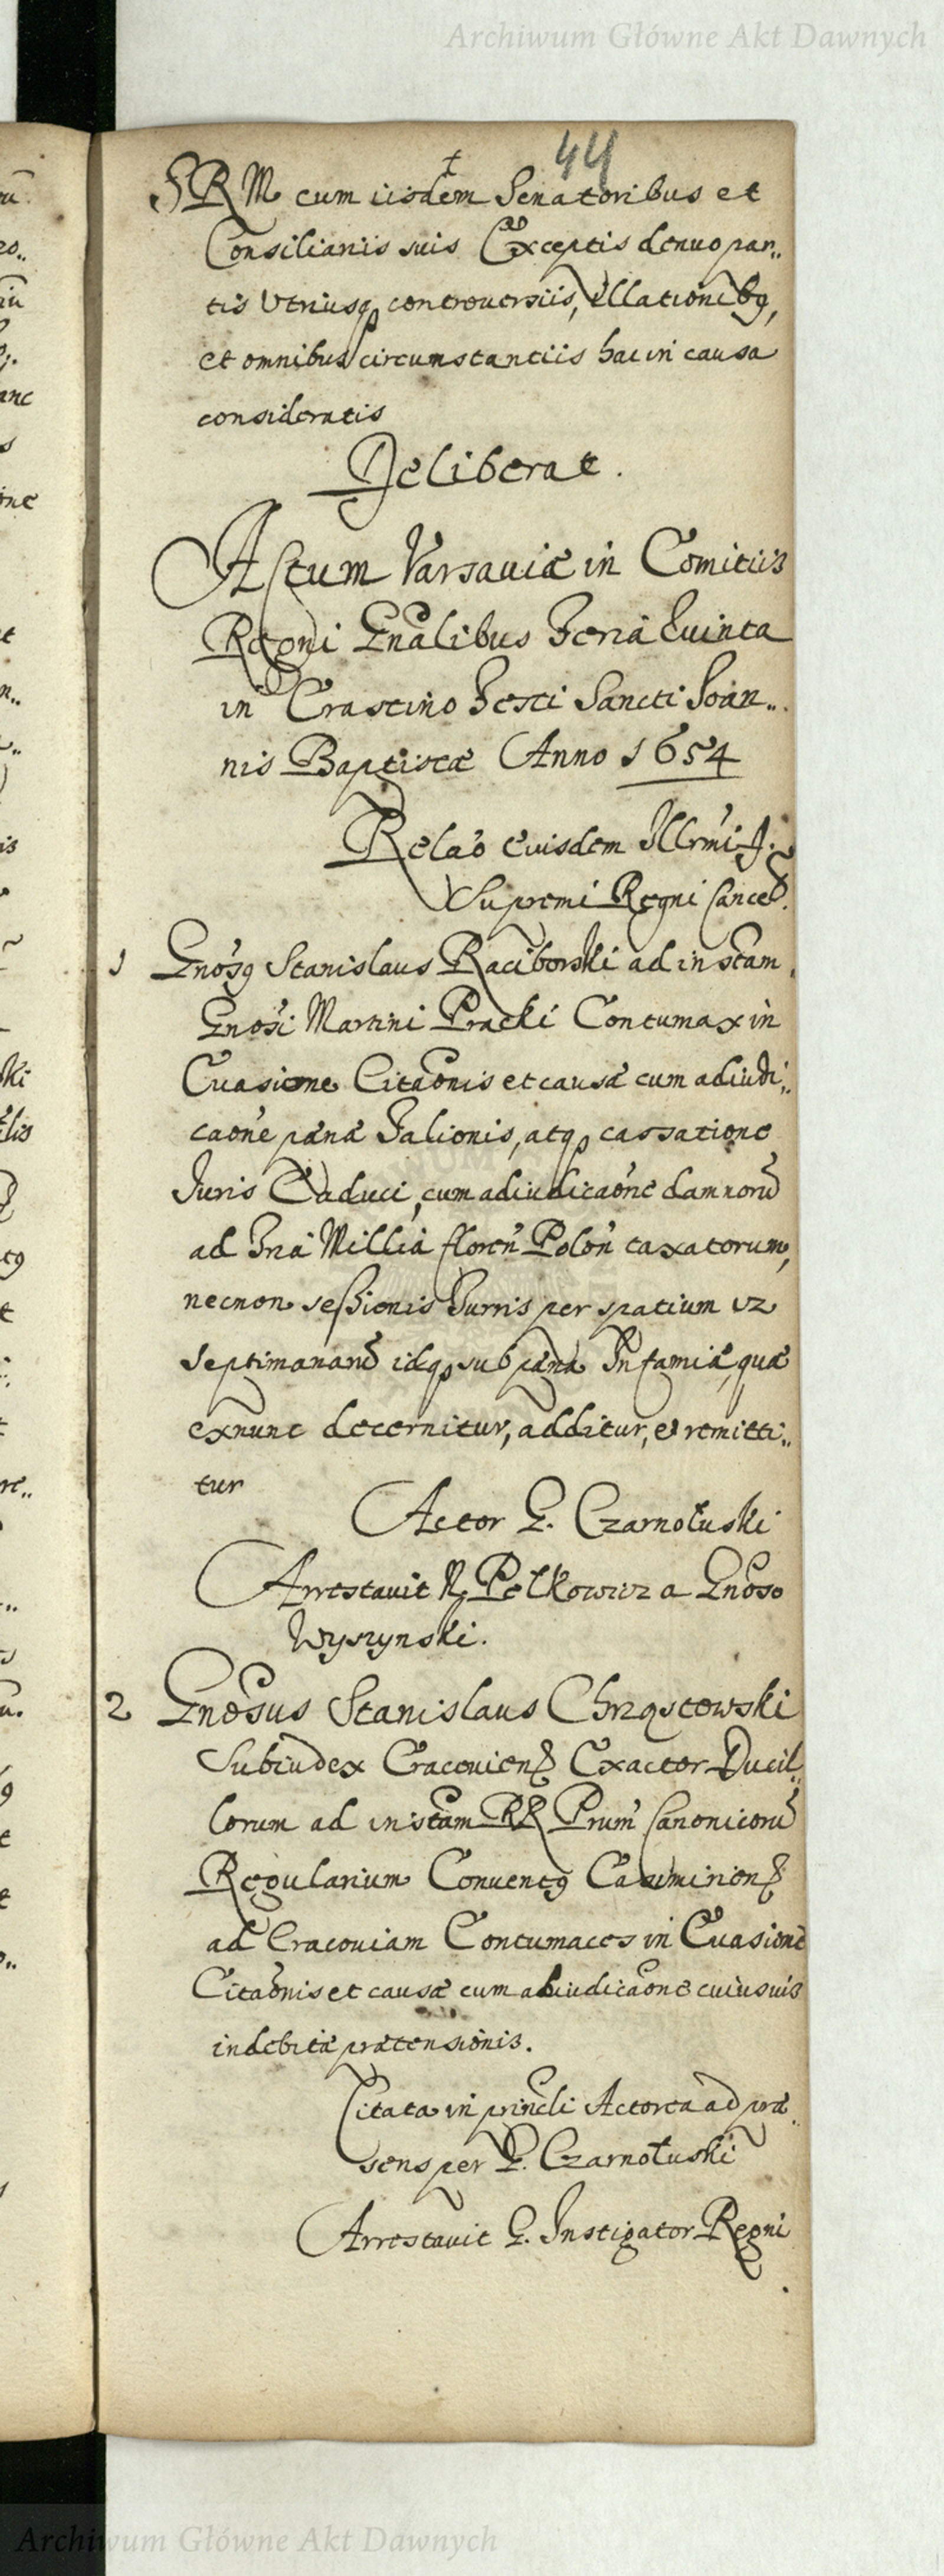 Archiwum Główne Akt Dawnych
44
SRM cum iisdem Senatoribus et
Consiliariis suis Exceptis denuo par..
tis Utriusq controversiis, illationibq,
et omnibus circumstanciis hac in causa
consideratis
Deliberat.
Actum Varsaviæ in Comitiis
Regni Gnalibus Feria Quinta
in Crastino Festi Sancti Joan..
nis Baptistæ Anno 1654
Relao eiusdem Illrmi J.
Supremi Regni Cancel.
1 Gnosq Stanislaus Raciborski ad instam
Gnosi Martini Pracki Contumax in
Evasione Citaonis et causæ cum adiudi..
caone pænæ Talionis, atq cassatione
Juris Caduci, cum adiudicaone damnorū
ad Tria Millia floren Polon taxatorum,
necnon sessionis Turris per spatium 12
septimanarū idq sub pæna Infamiæ, quæ
exnunc decernitur, additur, et remitti..
tur
Actor G. Czarnołuski
Arrestavit N. Pełkowicz a Gnoso
Wyszynski.
2 Gnosus Stanislaus Chrząstowski
Subiudex Cracoviens Exactor Ducil..
lorum ad instam RR Prum Canonicorū
Regularium Conventq Casimiriens
ad Cracoviam Contumaces in Evasione
Citaonis et causæ cum abiudicaone cuiusvis
indebitæ prætensionis.
Citata in princli Actorea ad præ..
sens per G. Czarnołuski
Arrestavit G. Instigator Regni
Archiwum Główne Akt Dawnych